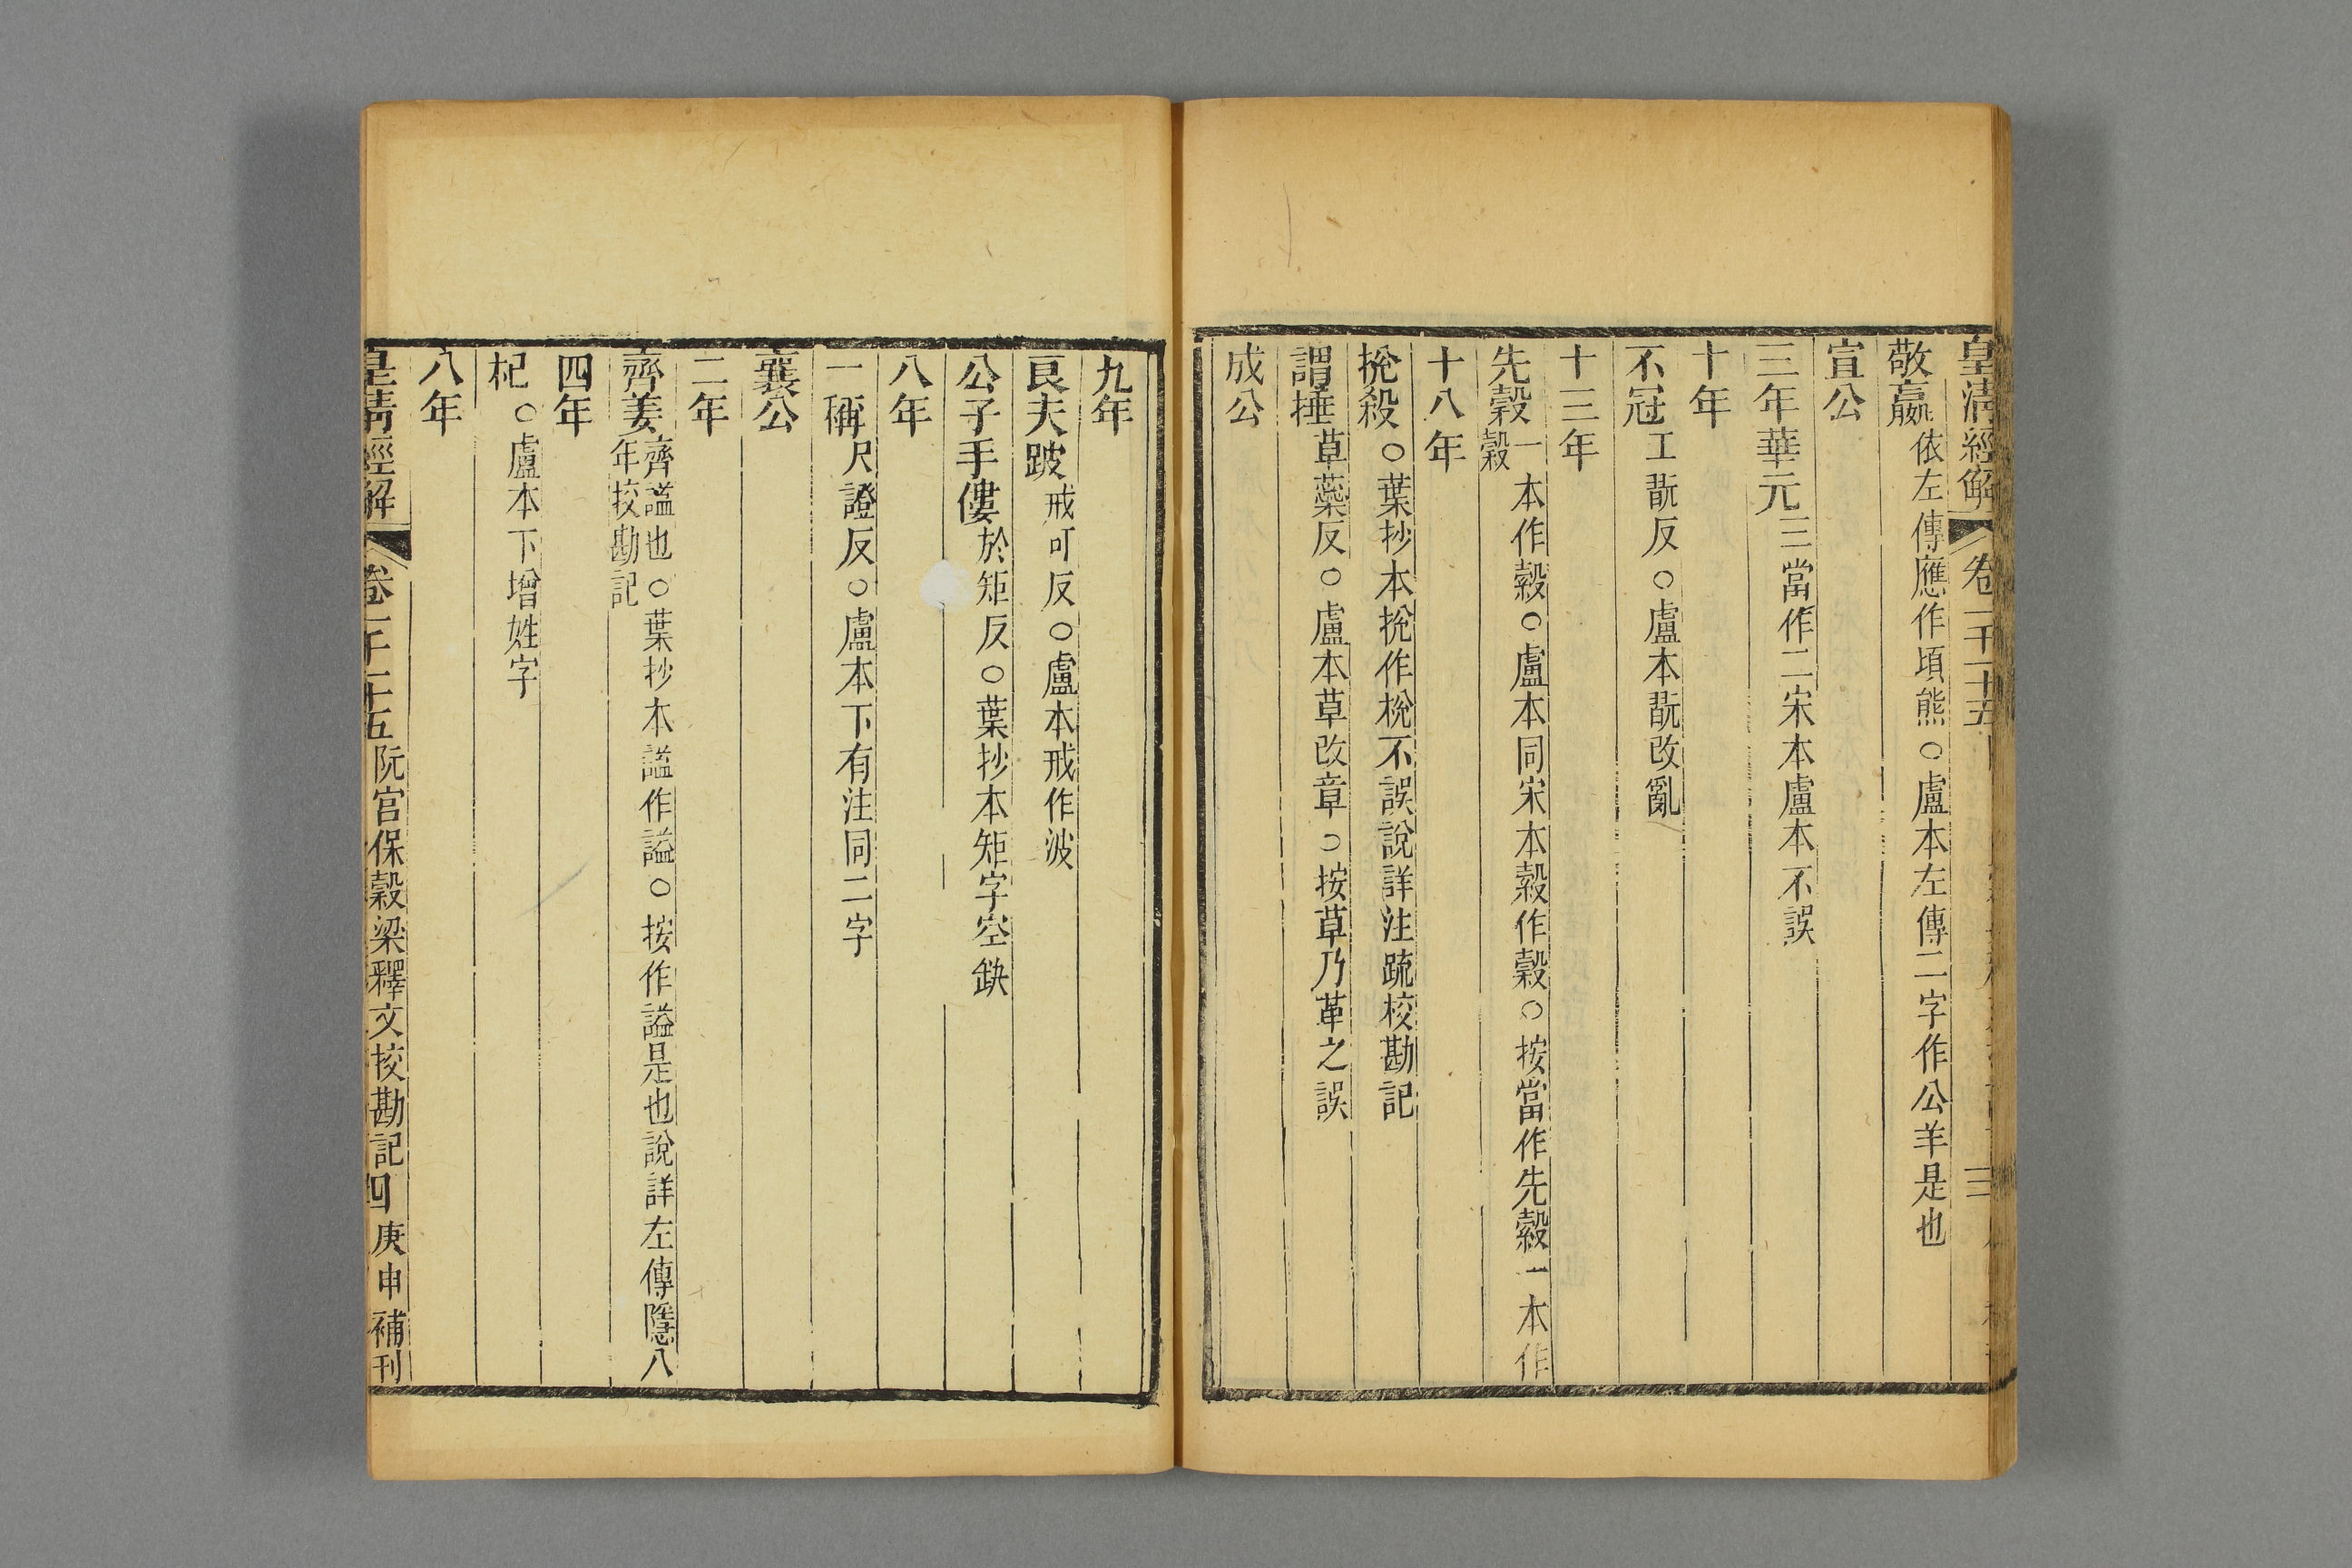 皇清經解 卷一千二十五 三
敬嬴依左傳應作頃熊○盧本左傳二字作公羊是也
宣公
三年華元三當作二宋本盧本不誤
十年
不冠工翫反○盧本翫改亂
十三年
先縠一本作穀○盧本同宋本縠作穀○按當作先縠一本作
縠
十八年
捝殺○葉抄本捝作梲不誤說詳注疏校勘記
謂捶草蘂反○盧本草改章○按草乃革之誤
成公
九年
良夫跛戒可反○盧本戒作波
公子手僂於矩反○葉抄本矩字空缺
八年
一稱尺證反○盧本下有注同二字
襄公
二年
齊姜齊謚也○葉抄本謚作諡○按作諡是也說詳左傳隱八
年挍勘記
四年
杞○盧本下增姓字
八年
皇清經解 卷一千二十五 阮宮保穀梁釋文挍勘記 四 庚申補刊